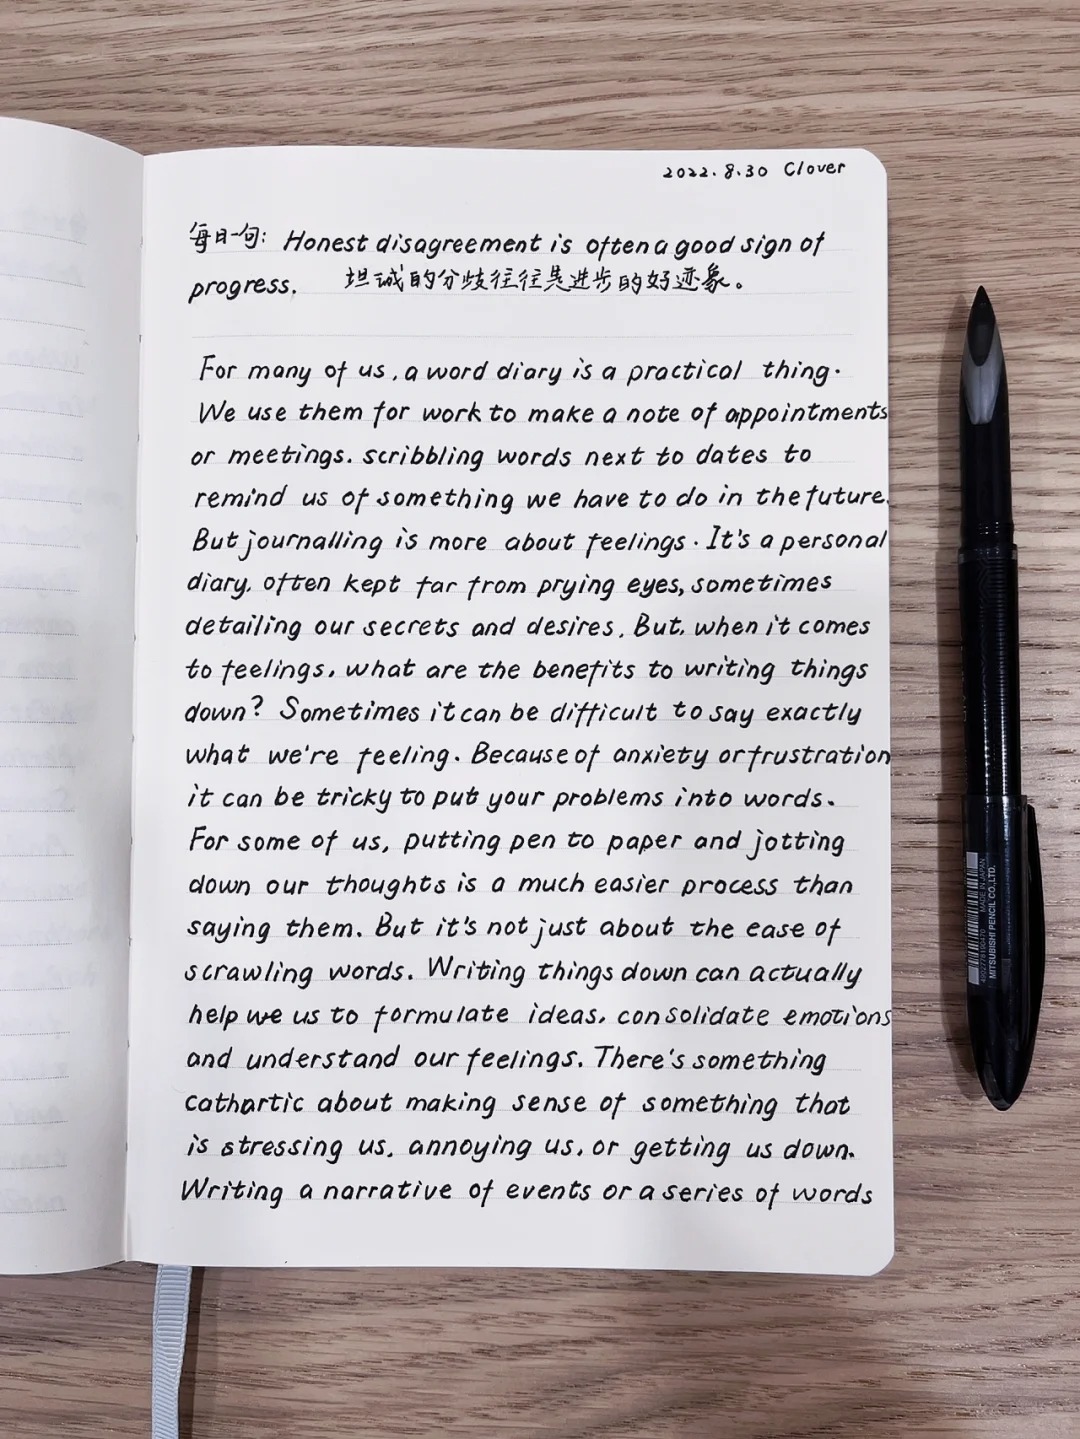 2022.8.30 Clover
每日一句: Honest disagreement is often a good sign of
progress. 坦诚的分歧往往是进步的好迹象。
For many of us, a word diary is a practical thing.
We use them for work to make a note of appointments
or meetings. scribbling words next to dates to
remind us of something we have to do in the future.
But journalling is more about feelings. It's a personal
diary. often kept far from prying eyes, sometimes
detailing our secrets and desires. But, when it comes
to feelings. what are the benefits to writing things
down? Sometimes it can be difficult to say exactly
what we're feeling. Because of anxiety or frustration
it can be tricky to put your problems into words.
For some of us, putting pen to paper and jotting
down our thoughts is a much easier process than
saying them. But it's not just about the ease of
scrawling words. Writing things down can actually
help we us to formulate ideas. consolidate emotions
and understand our feelings. There's something
cathartic about making sense of something that
is stressing us. annoying us. or getting us down.
Writing a narrative of events or a series of words
4902778190470 MADE IN JAPAN
MITSUBISHI PENCIL CO.,LTD.